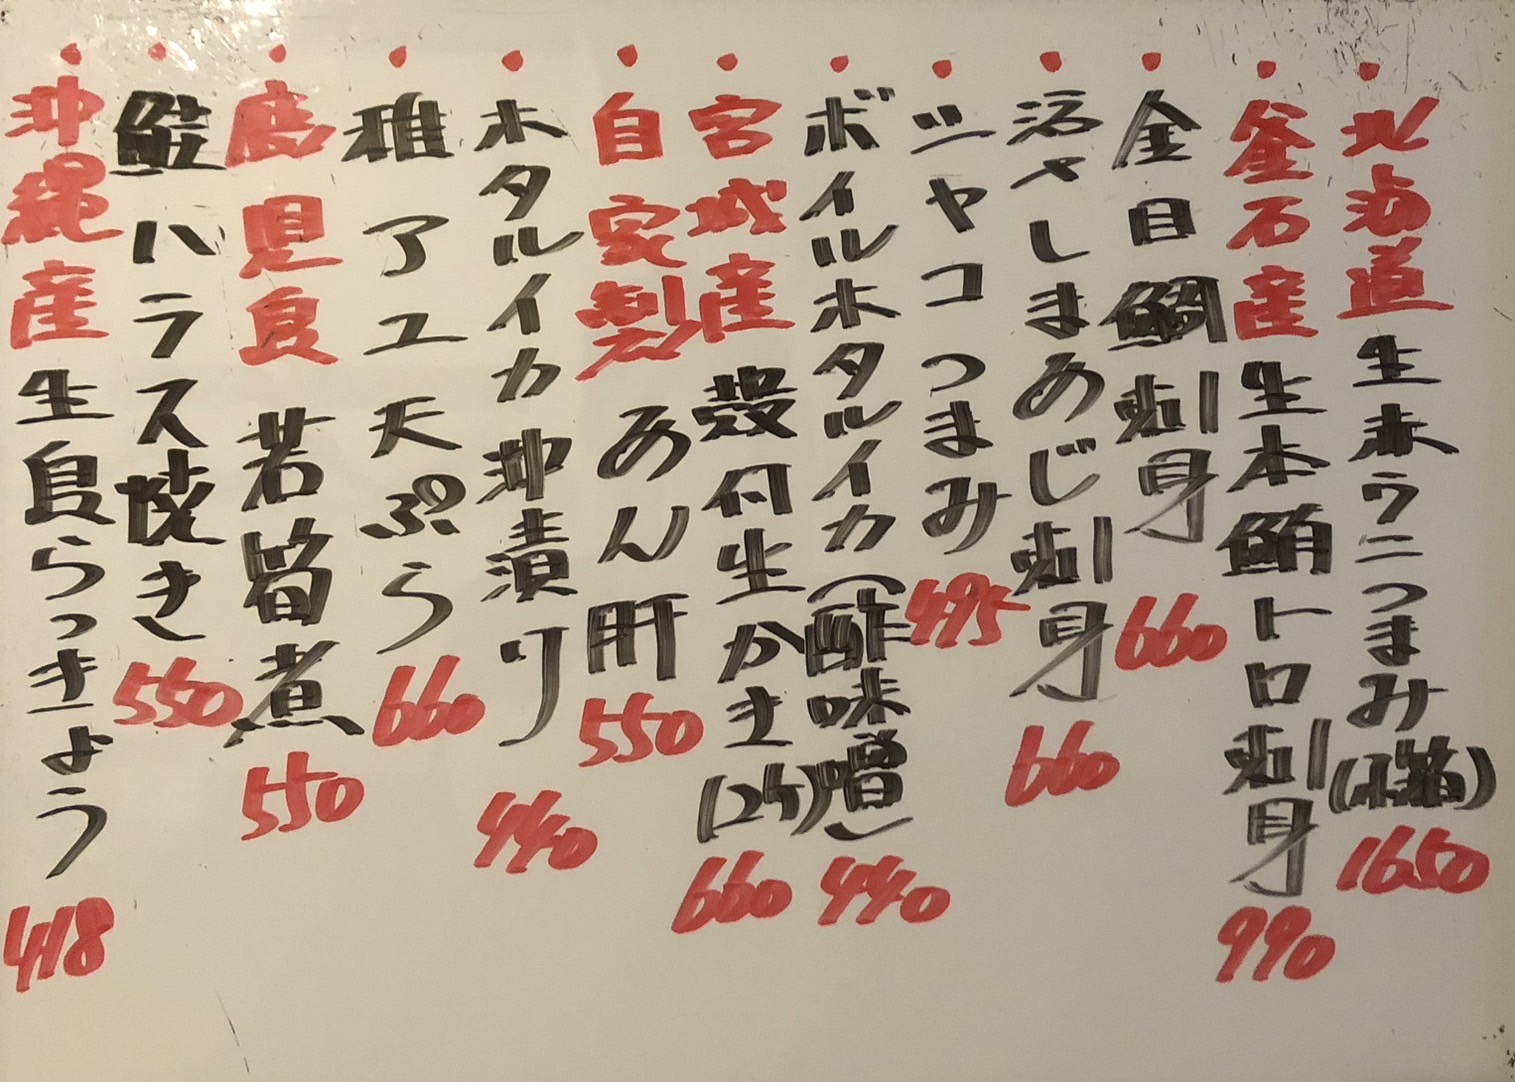 ・北海道生赤ウニつまみ(箱)1650
・釜石産生本鮪トロ刺身990
・金目鯛刺身660
・活〆しまあじ刺身660
・シャコつまみ495
・ボイルホタルイカ(酢味噌)440
・宮城産殻付生かき(2ケ)660
・自家製あん肝550
・ホタルイカ沖漬り440
・稚アユ天ぷら660
・鹿児島若筍煮550
・鮭ハラス焼き550
・沖縄産生島らっきょう418